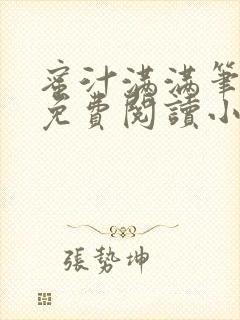 蜜汁滿滿筆
免費閱讀小
張勢坤